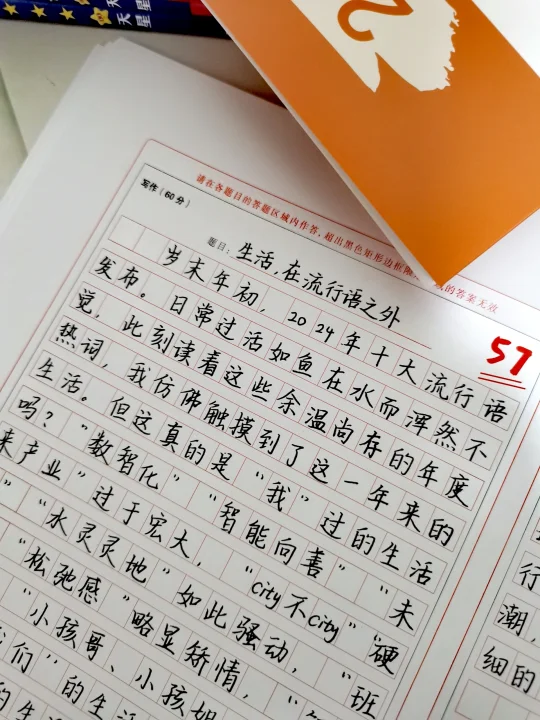 天星
天星
2
请在各题目的答题区域内作答,超出黑色矩形边框限
的答案无效
写作(60分)
题目:生活,在流行语之外
57
岁末年初,2024年十大流行语
发布。日常过活如鱼在水而浑然不
觉,此刻读着这些余温尚存的年度
热词,我仿佛触摸到了这一年来的
生活。但这真的是“我”过的生活
吗?“数智化”“智能向善”“未
来产业”过于宏大,“city不city”“硬
”“水灵灵地”如此骚动,“班
“松弛感”略显矫情,“
“小孩哥、小孩姐
们”的生活
的生活
行
潮,
细的